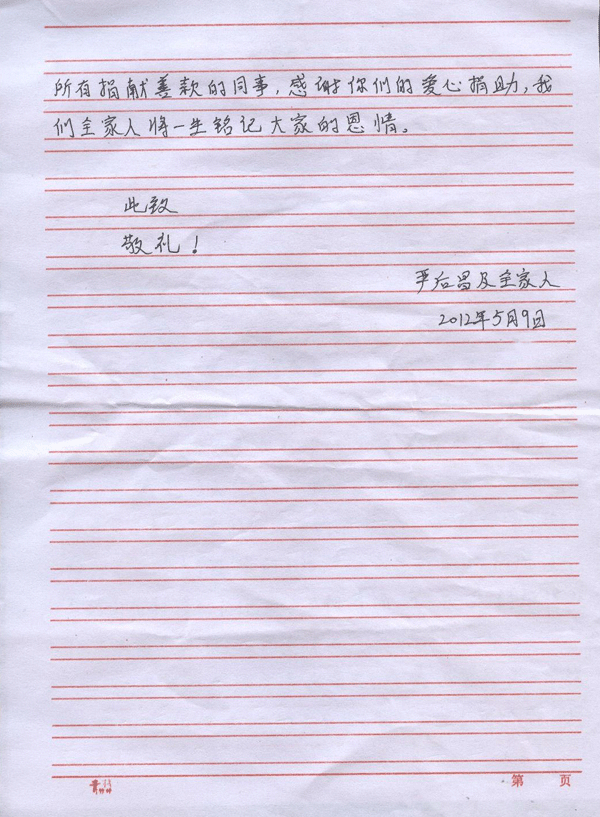 所有捐献善款的同事，感谢你们的爱心捐助，我
们全家人将一生铭记大家的恩情。
此致
敬礼！
严后昌及全家人
2012年5月9日
第 页